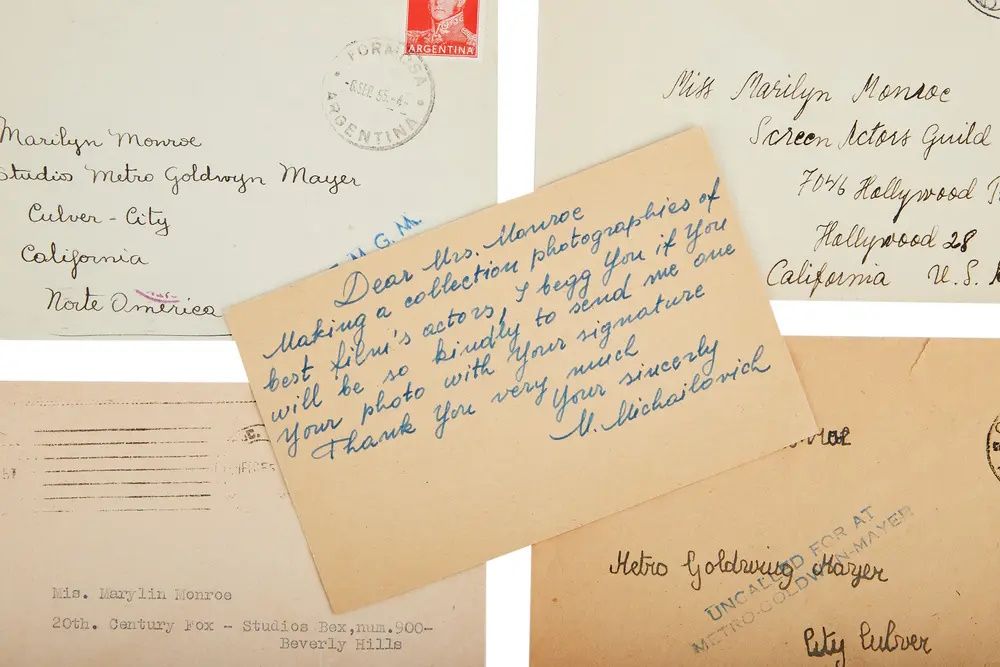 ARGENTINA
FORMOSA
-6 SEP. 55.-4
ARGENTINA
Marilyn Monroe
Studios Metro Goldwyn Mayer
Culver-City
California
Norte America
M.G.M.
Miss Marilyn Monroe
Screen Actors Guild
7046 Hollywood
Hollywood 28
California U.S.
Dear Mrs. Monroe
Making a collection photographies of
best film's actors, I begg You if You
will be so kindly to send me one
Your photo with Your signature
Thank You very much
Your sincerly
M. Michailovich
Mis. Marylin Monroe
20th. Century Fox - Studios Bex,num.900-
Beverly Hills
UNCALLED FOR AT
METRO-GOLDWYN-MAYER
Metro Goldwing Mayer
City Culver